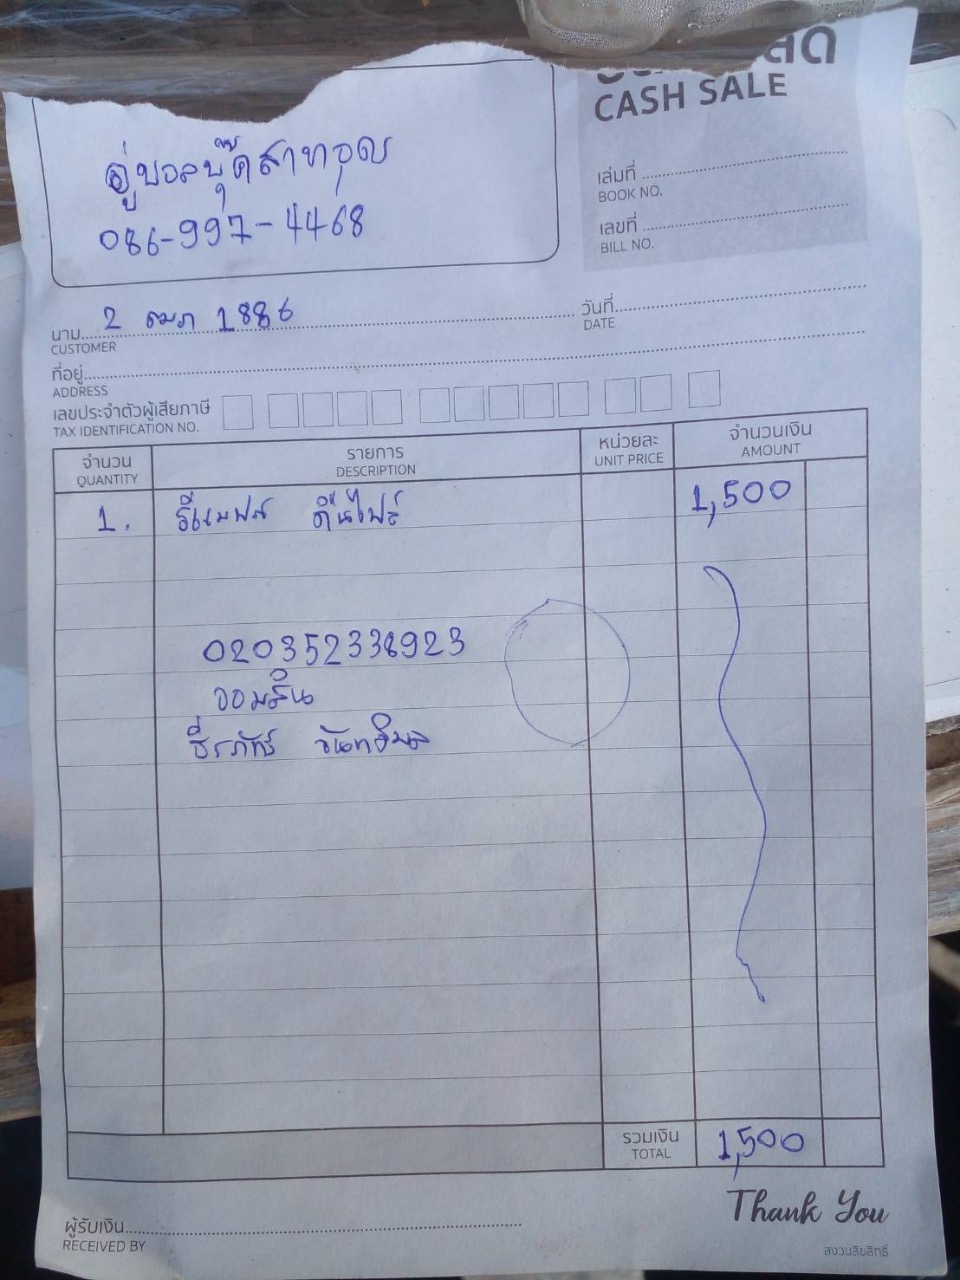 CASH SALE
อู่บอลบุ๊คสาทอุด
086-997-4468
เล่มที่
BOOK NO.
เลขที่
BILL NO.
นาม 2 ฒฒภ 1886
CUSTOMER
วันที่
DATE
ที่อยู่
ADDRESS
เลขประจำตัวผู้เสียภาษี
TAX IDENTIFICATION NO.
จำนวน รายการ หน่วยละ จำนวนเงิน
QUANTITY DESCRIPTION UNIT PRICE AMOUNT
1. รีแมพส์ ดันไฟร์ 1,500
020352338923
ออมสิน
ธีรภัทร์
รวมเงิน 1,500
TOTAL
Thank You
ผู้รับเงิน
RECEIVED BY
สงวนลิขสิทธิ์